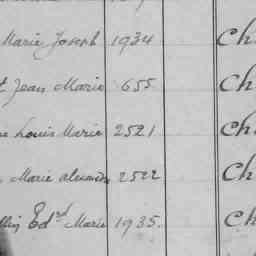 Marie Joseph 1934 Ch
t Jean Marie 655 Ch
e Louis Marie 2521 Ch
Marie alexandre 2522 Ch
llin Edrd Marie 1935. Ch